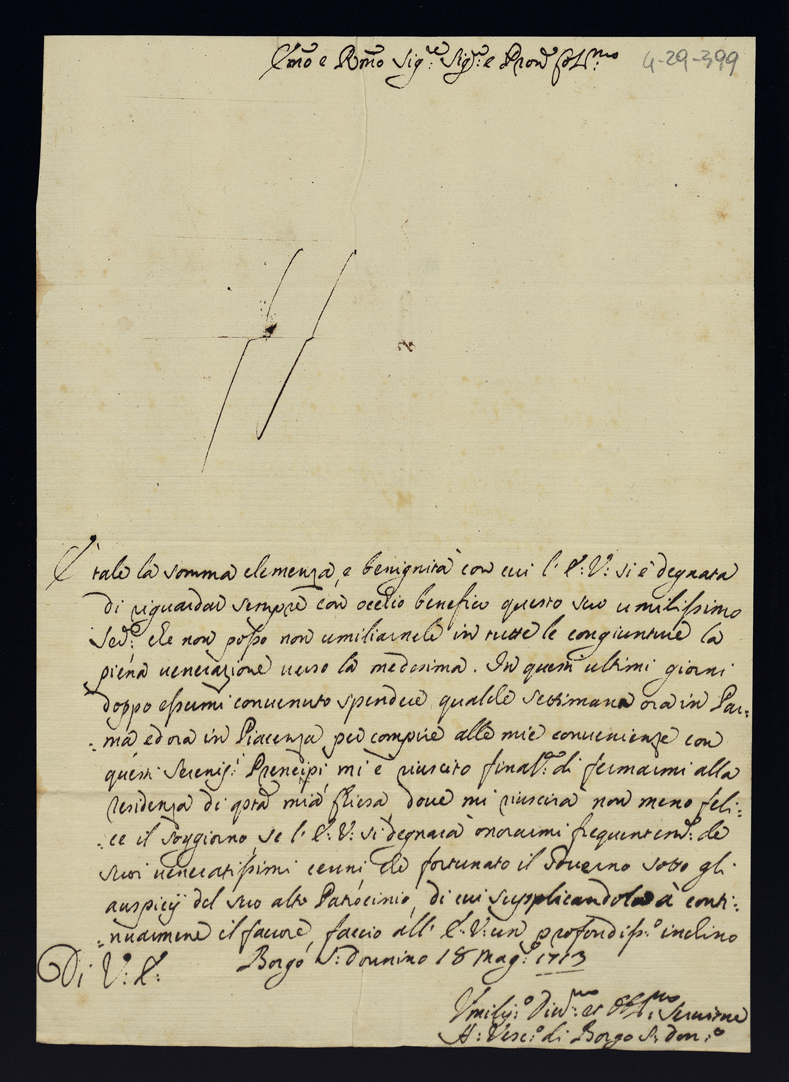 Emo e Rmo Sig.re Sig.re e Pron Col.mo
4-29-399
È tale la somma clemenza, e benignità con cui l' E: V: si è degnata
di riguardar sempre con occhio benefico questo suo umilissimo
Ser.e che non posso non umiliarnele in tutte le congiunture la
piena venerazione verso la medesima. In questi ultimi giorni
doppo essermi convenuto spendere qualche settimana ora in Par:
:ma ed ora in Piacenza per compire alle mie convenienze con
questi Sereniss: Prencipi, mi è riuscito final.e di fermarmi alla
residenza di qsta mia Chiesa dove mi riuscirà non meno feli:
:ce il soggiorno, se l' E: V: si degnarà onorarmi frequentem.e de
suoi veneratissimi cenni che fortunato il Governo sotto gli
auspicij del suo alto Patrocinio, di cui supplicandola à conti:
:nuarmene il favore, faccio all' E: V: un profondiss.o inchino
Di V: E: Borgo S: Donnino 18 Mag.o 1713
Umilis.o Div.mo et Obl.mo Servitore
A: Vesc.o di Borgo S: Don:o